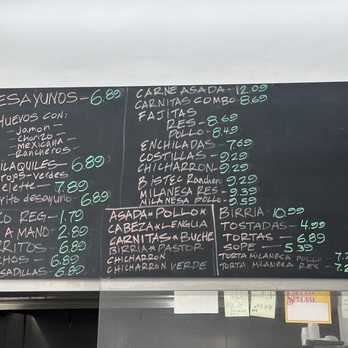 ESAYUNOS - 6.89
HUEVOS CON:
Jamon
Chorizo
Mexicana
Rancheros
ILAQUILES 6.89
Rojos-Verdes
elette - 7.89
rito desayuno 6.89
CO REG - 1.79
A MANO - 2.89
RRITOS - 6.89
CHOS - 6.89
SADILLAS - 6.89
CARNE ASADA - 12.09
CARNITAS COMBO 8.69
FAJITAS
RES - 8.69
POLLO - 8.49
ENCHILADAS 7.69
COSTILLAS - 9.29
CHICHARRON - 9.29
BISTEC Ranchero 9.29
MILANESA RES - 9.39
MILANESA POLLO 9.59
ASADA * POLLO *
CABEZA * LENGUA
CARNITAS * BUCHE
BIRRIA * PASTOR
CHICHARRON
CHICHARRON VERDE
BIRRIA - 10.99
TOSTADAS - 4.99
TORTAS - 6.89
SOPE - 5.39
TORTA MILANESA POLLO 7.
TORTA MILANESA RES 7.2
SPECIAL